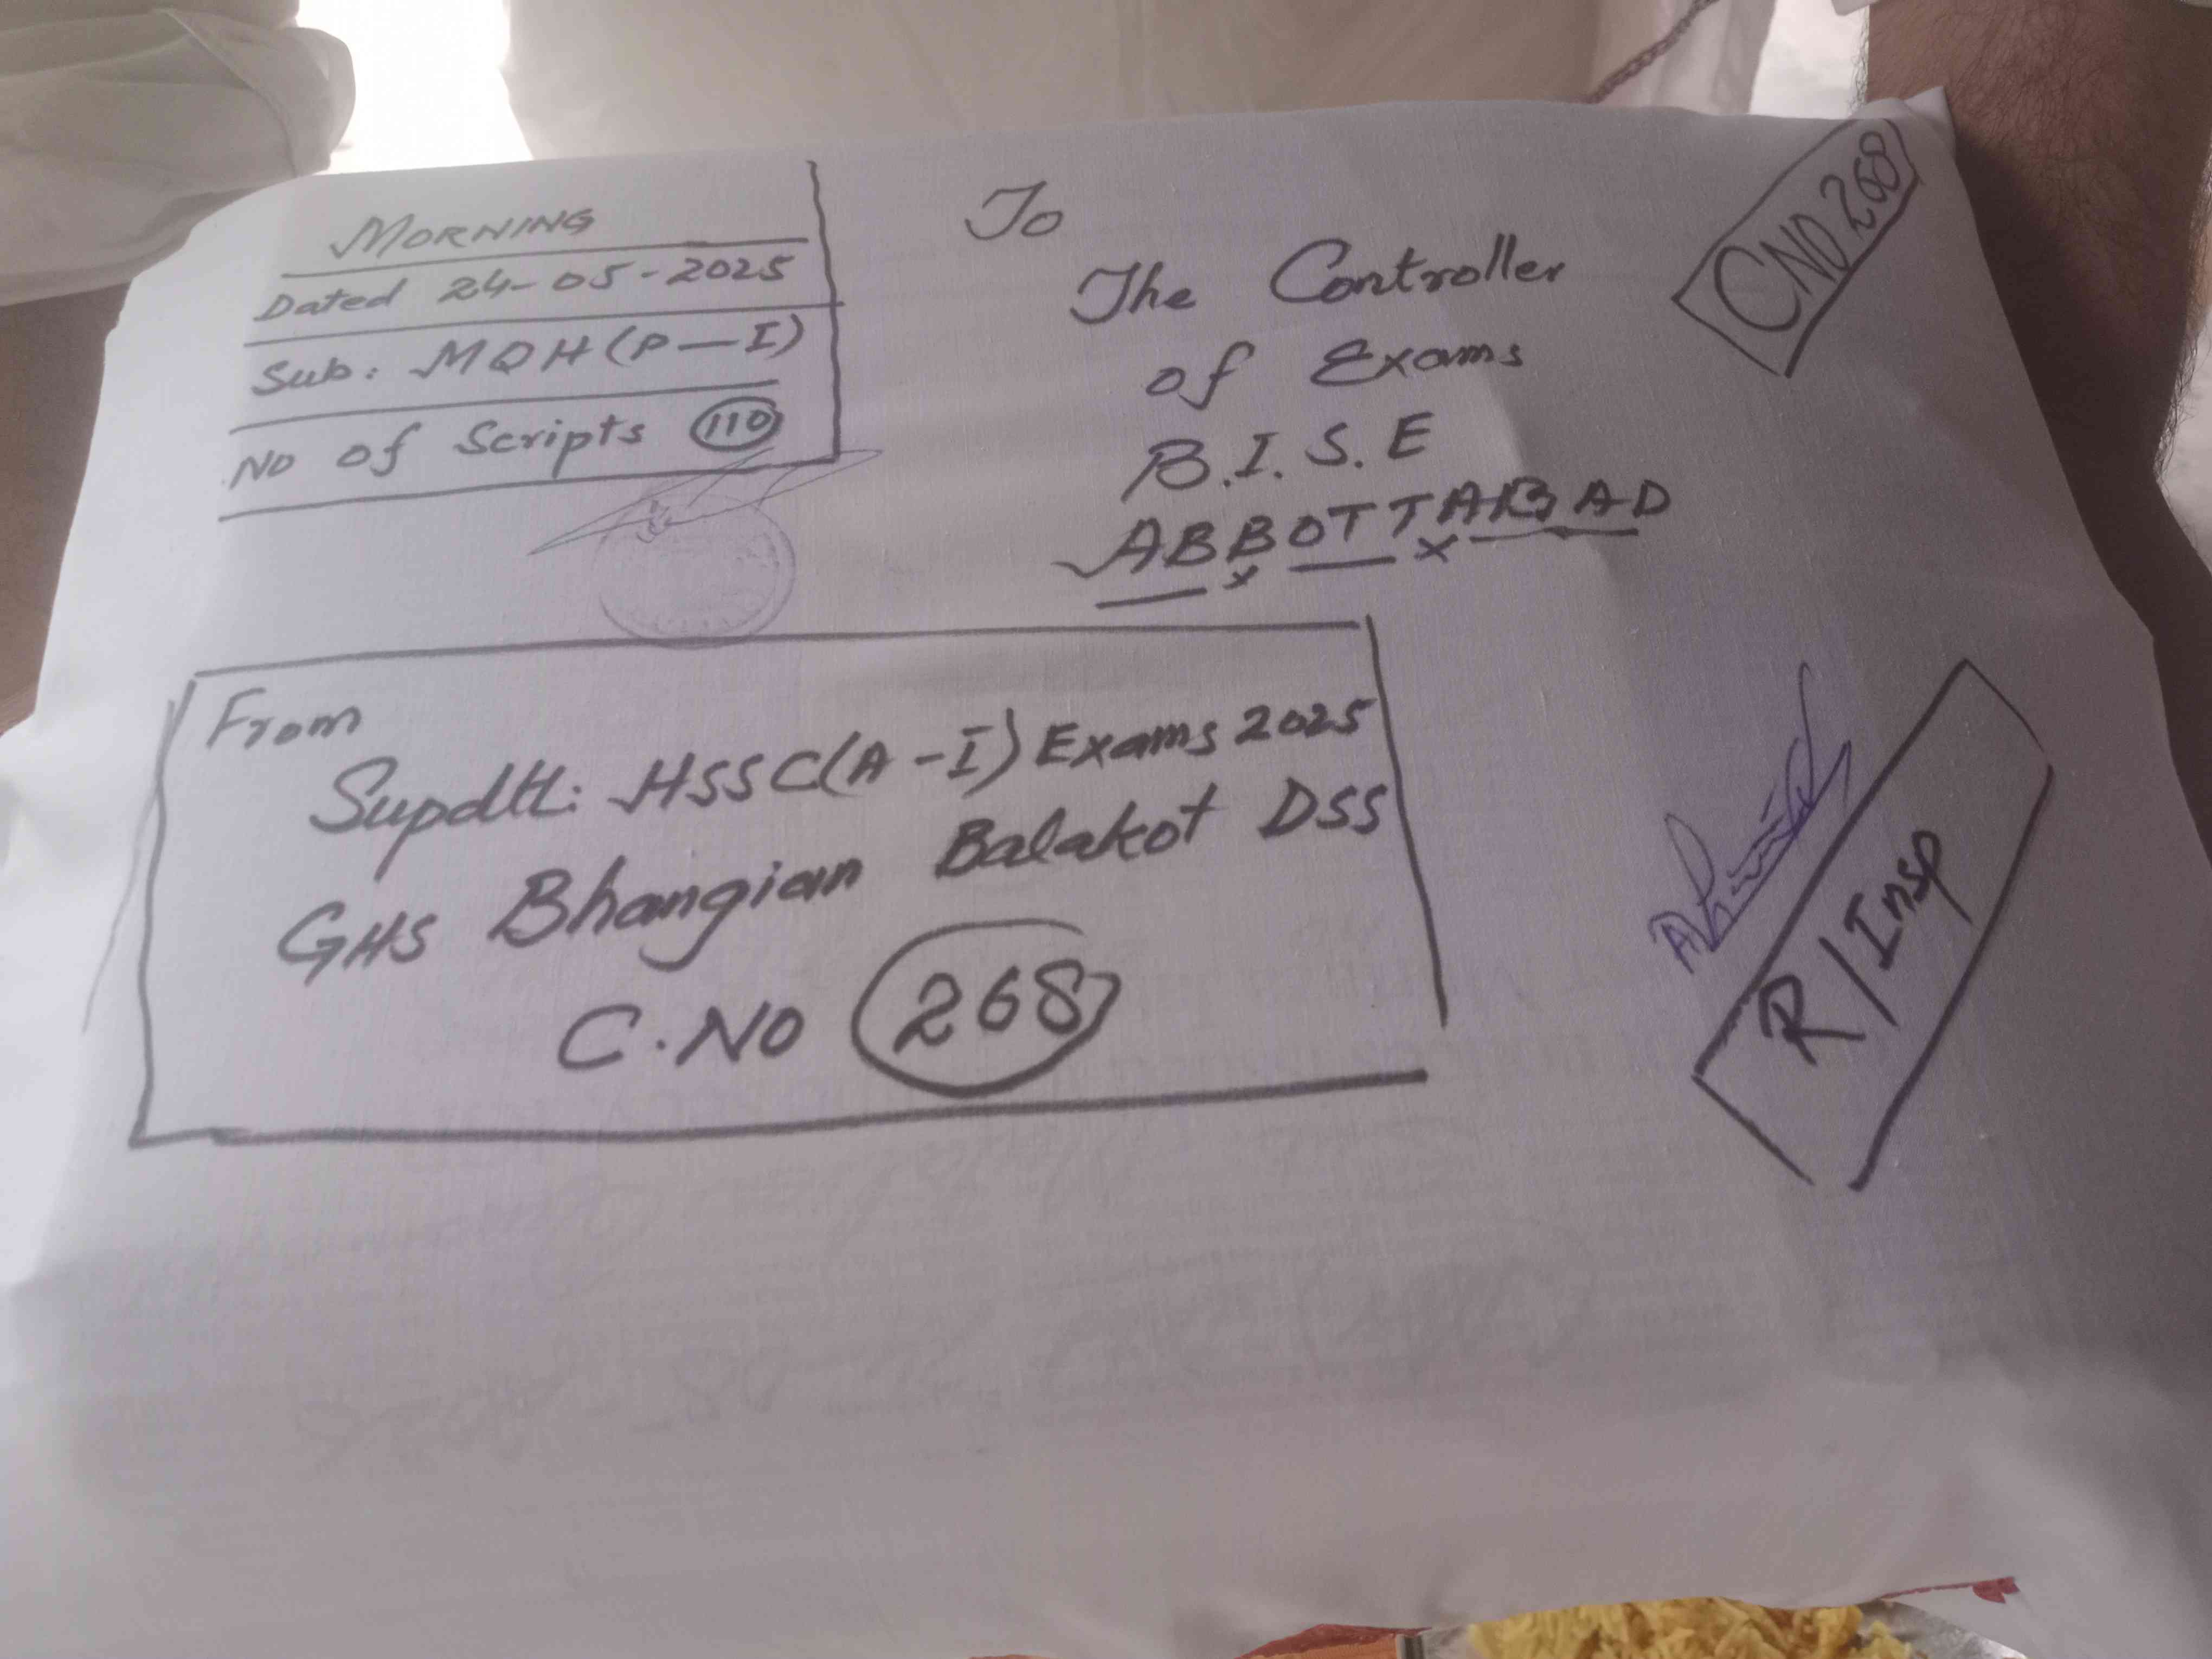 MORNING
Dated 24-05-2025
Sub: MQH (P-I)
No of Scripts 110
To
The Controller
of Exams
B.I.S.E
ABBOTTABAD
CNO 268
From
Supdtt: HSSC(A-I) Exams 2025
GHS Bhangian Balakot DSS
C.NO 268
R/Insp